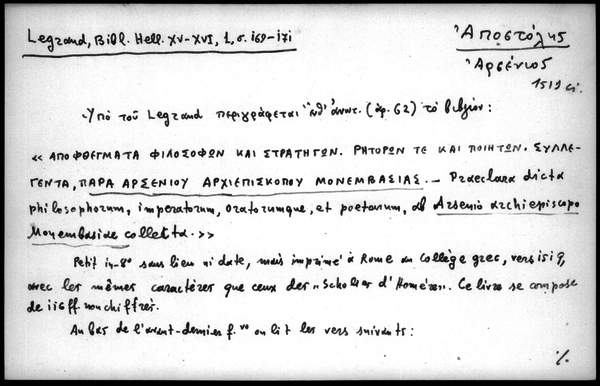 Legrand, Bibl. Hell. XV-XVI, 1, σ. 169-171
Ἀποστόλης
Ἀρσένιος
1519 ci.
Ὑπὸ τοῦ Legrand περιγράφεται ἔνθ' ἀνωτ. (ἀρ. 62) τὸ βιβλίον:
« ΑΠΟΦΘΕΓΜΑΤΑ ΦΙΛΟΣΟΦΩΝ ΚΑΙ ΣΤΡΑΤΗΓΩΝ. ΡΗΤΟΡΩΝ ΤΕ ΚΑΙ ΠΟΙΗΤΩΝ. ΣΥΛΛΕ-
ΓΕΝΤΑ, ΠΑΡΑ ΑΡΣΕΝΙΟΥ ΑΡΧΙΕΠΙΣΚΟΠΟΥ ΜΟΝΕΜΒΑΣΙΑΣ. – Praeclara dicta
philosophorum, imperatorum, oratorumque, et poetarum, ab Arsenio archiepiscopo
Monembasiae collecta. >>
Petit in-8º sans lieu ni date, mais imprimé à Rome au Collège grec, vers 1519,
avec les mêmes caractères que ceux des "Scholies d'Homère". Ce livre se compose
de 116 ff non chiffrés.
Au bas de l'avant-dernier f. vo on lit les vers suivants:
%.